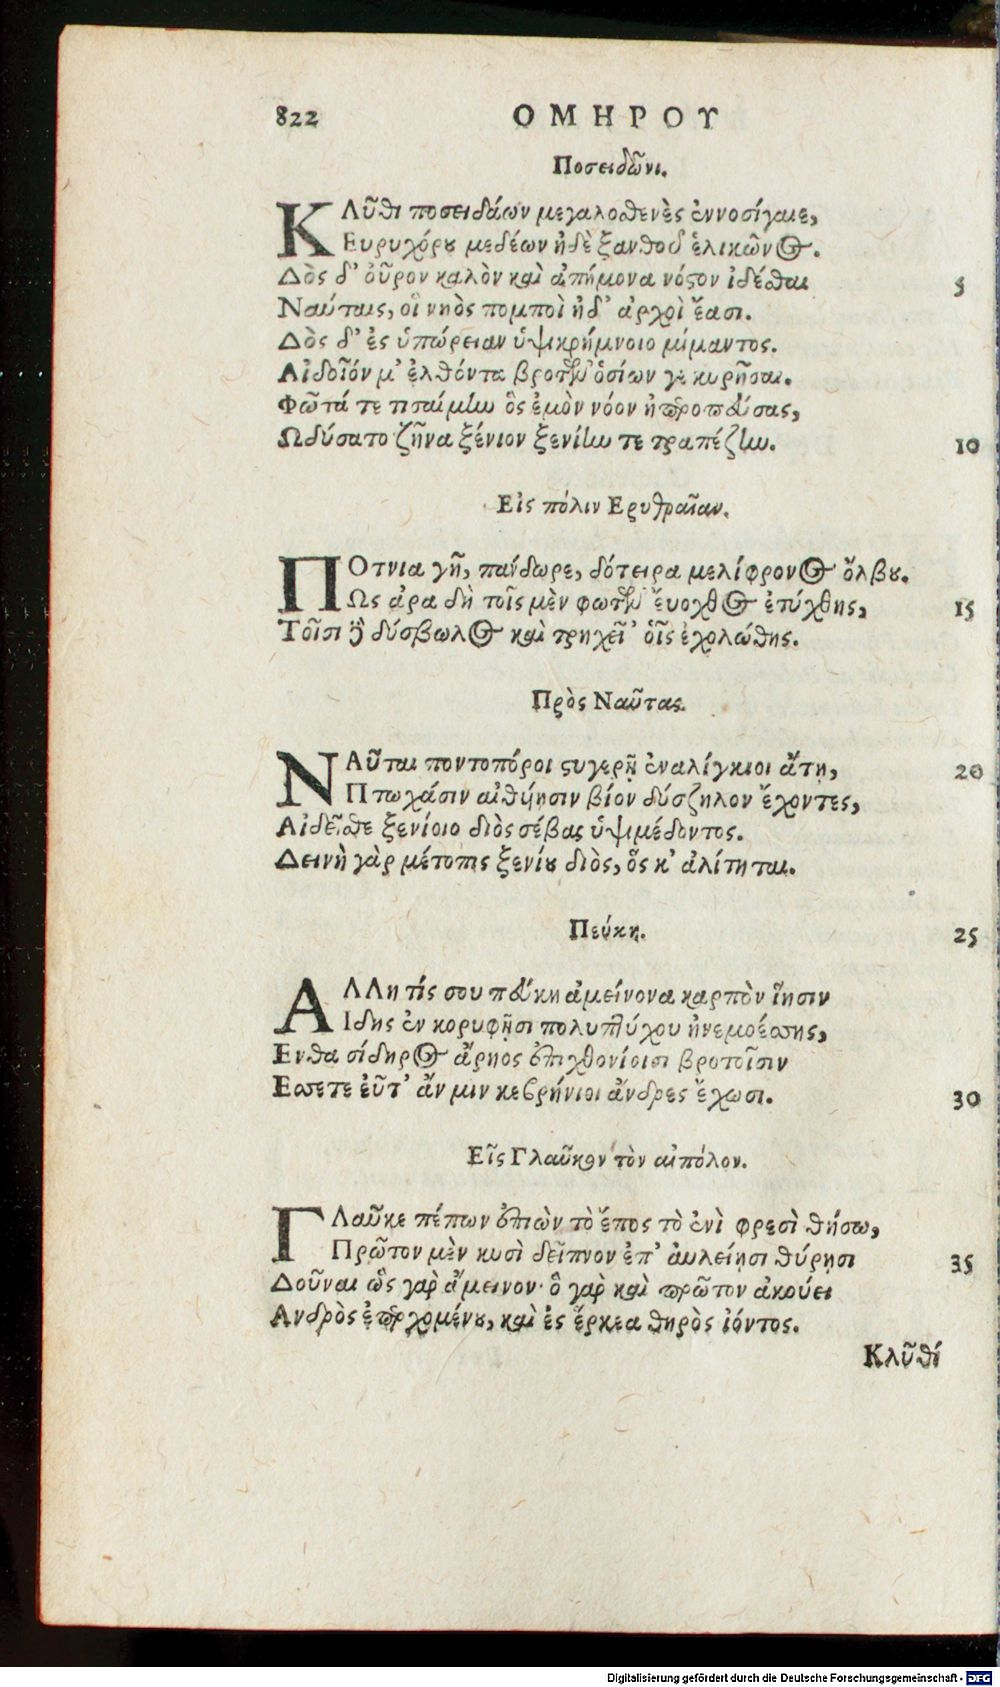 822 ΟΜΗΡΟΥ
Ποσειδῶνι.
ΚΛῦθι ποσειδάων μεγαλοσθενὲς ἐννοσίγαιε,
Ευρυχόρου μεδέων ἠδὲ ξανθοῦ ἑλικῶνος.
Δὸς δ' οὖρον καλὸν καὶ ἀπήμονα νόστον ἰδέσθαι 5
Ναύταις, οἳ νηὸς πομποὶ ἠδ' ἀρχοὶ ἔασι.
Δὸς δ' ἐς ὑπώρειαν ὑψικρήμνοιο μίμαντος.
Αἰδοῖόν μ' ἐλθόντα βροτῶν ὁσίων γε κυρῆσαι.
Φῶτά τε τισαίμην ὃς ἐμὸν νόον ἠπεροπεύσας,
Ωδύσατο ζῆνα ξένιον ξενίην τε τραπέζην. 10
Εἰς πόλιν Ερυθραῖαν.
ΠΟτνια γῆ, πάνδωρε, δότειρα μελίφρονος ὄλβου.
Ως ἄρα δὴ τοῖς μὲν φωτῶν εὔοχθος ἐτύχθης, 15
Τοῖσι δὲ δύσβωλος καὶ τρηχεῖ' οἷς ἐχολώθης.
Πρὸς Ναῦτας.
ΝΑῦται ποντοπόροι στυγερῇ ἐναλίγκιοι ἄτῃ, 20
Πτωχάσιν αἰθυίῃσιν βίον δύσζηλον ἔχοντες,
Αἰδεῖσθε ξενίοιο διὸς σέβας ὑψιμέδοντος.
Δεινὴ γὰρ μέτοπις ξενίου διὸς, ὅς κ' ἀλίτηται.
Πεύκη. 25
ΑΛΛη τίς σου πεύκη ἀμείνονα καρπὸν ἵησιν
Ιδης ἐν κορυφῇσι πολυπτύχου ἠνεμοέσσης,
Ενθα σίδηρος ἄρηος ἐπιχθονίοισι βροτοῖσιν
Εσσετε εὖτ' ἄν μιν κεβρήνιοι ἄνδρες ἔχωσι. 30
Εῖς Γλαῦκον τὸν αἰπόλον.
ΓΛαῦκε πέπων ἐπιὼν τὸ ἔπος τὸ ἐνὶ φρεσὶ θήσω,
Πρῶτον μὲν κυσὶ δεῖπνον ἐπ' αυλείῃσι θύρῃσι 35
Δοῦναι ὣς γὰρ ἄμεινον· ὃ γὰρ καὶ πρῶτον ἀκούει
Ανδρὸς ἐπερχομένου, καὶ ἐς ἕρκεα θηρὸς ἰόντος.
Κλῦθί
Digitalisierung gefördert durch die Deutsche Forschungsgemeinschaft - DFG